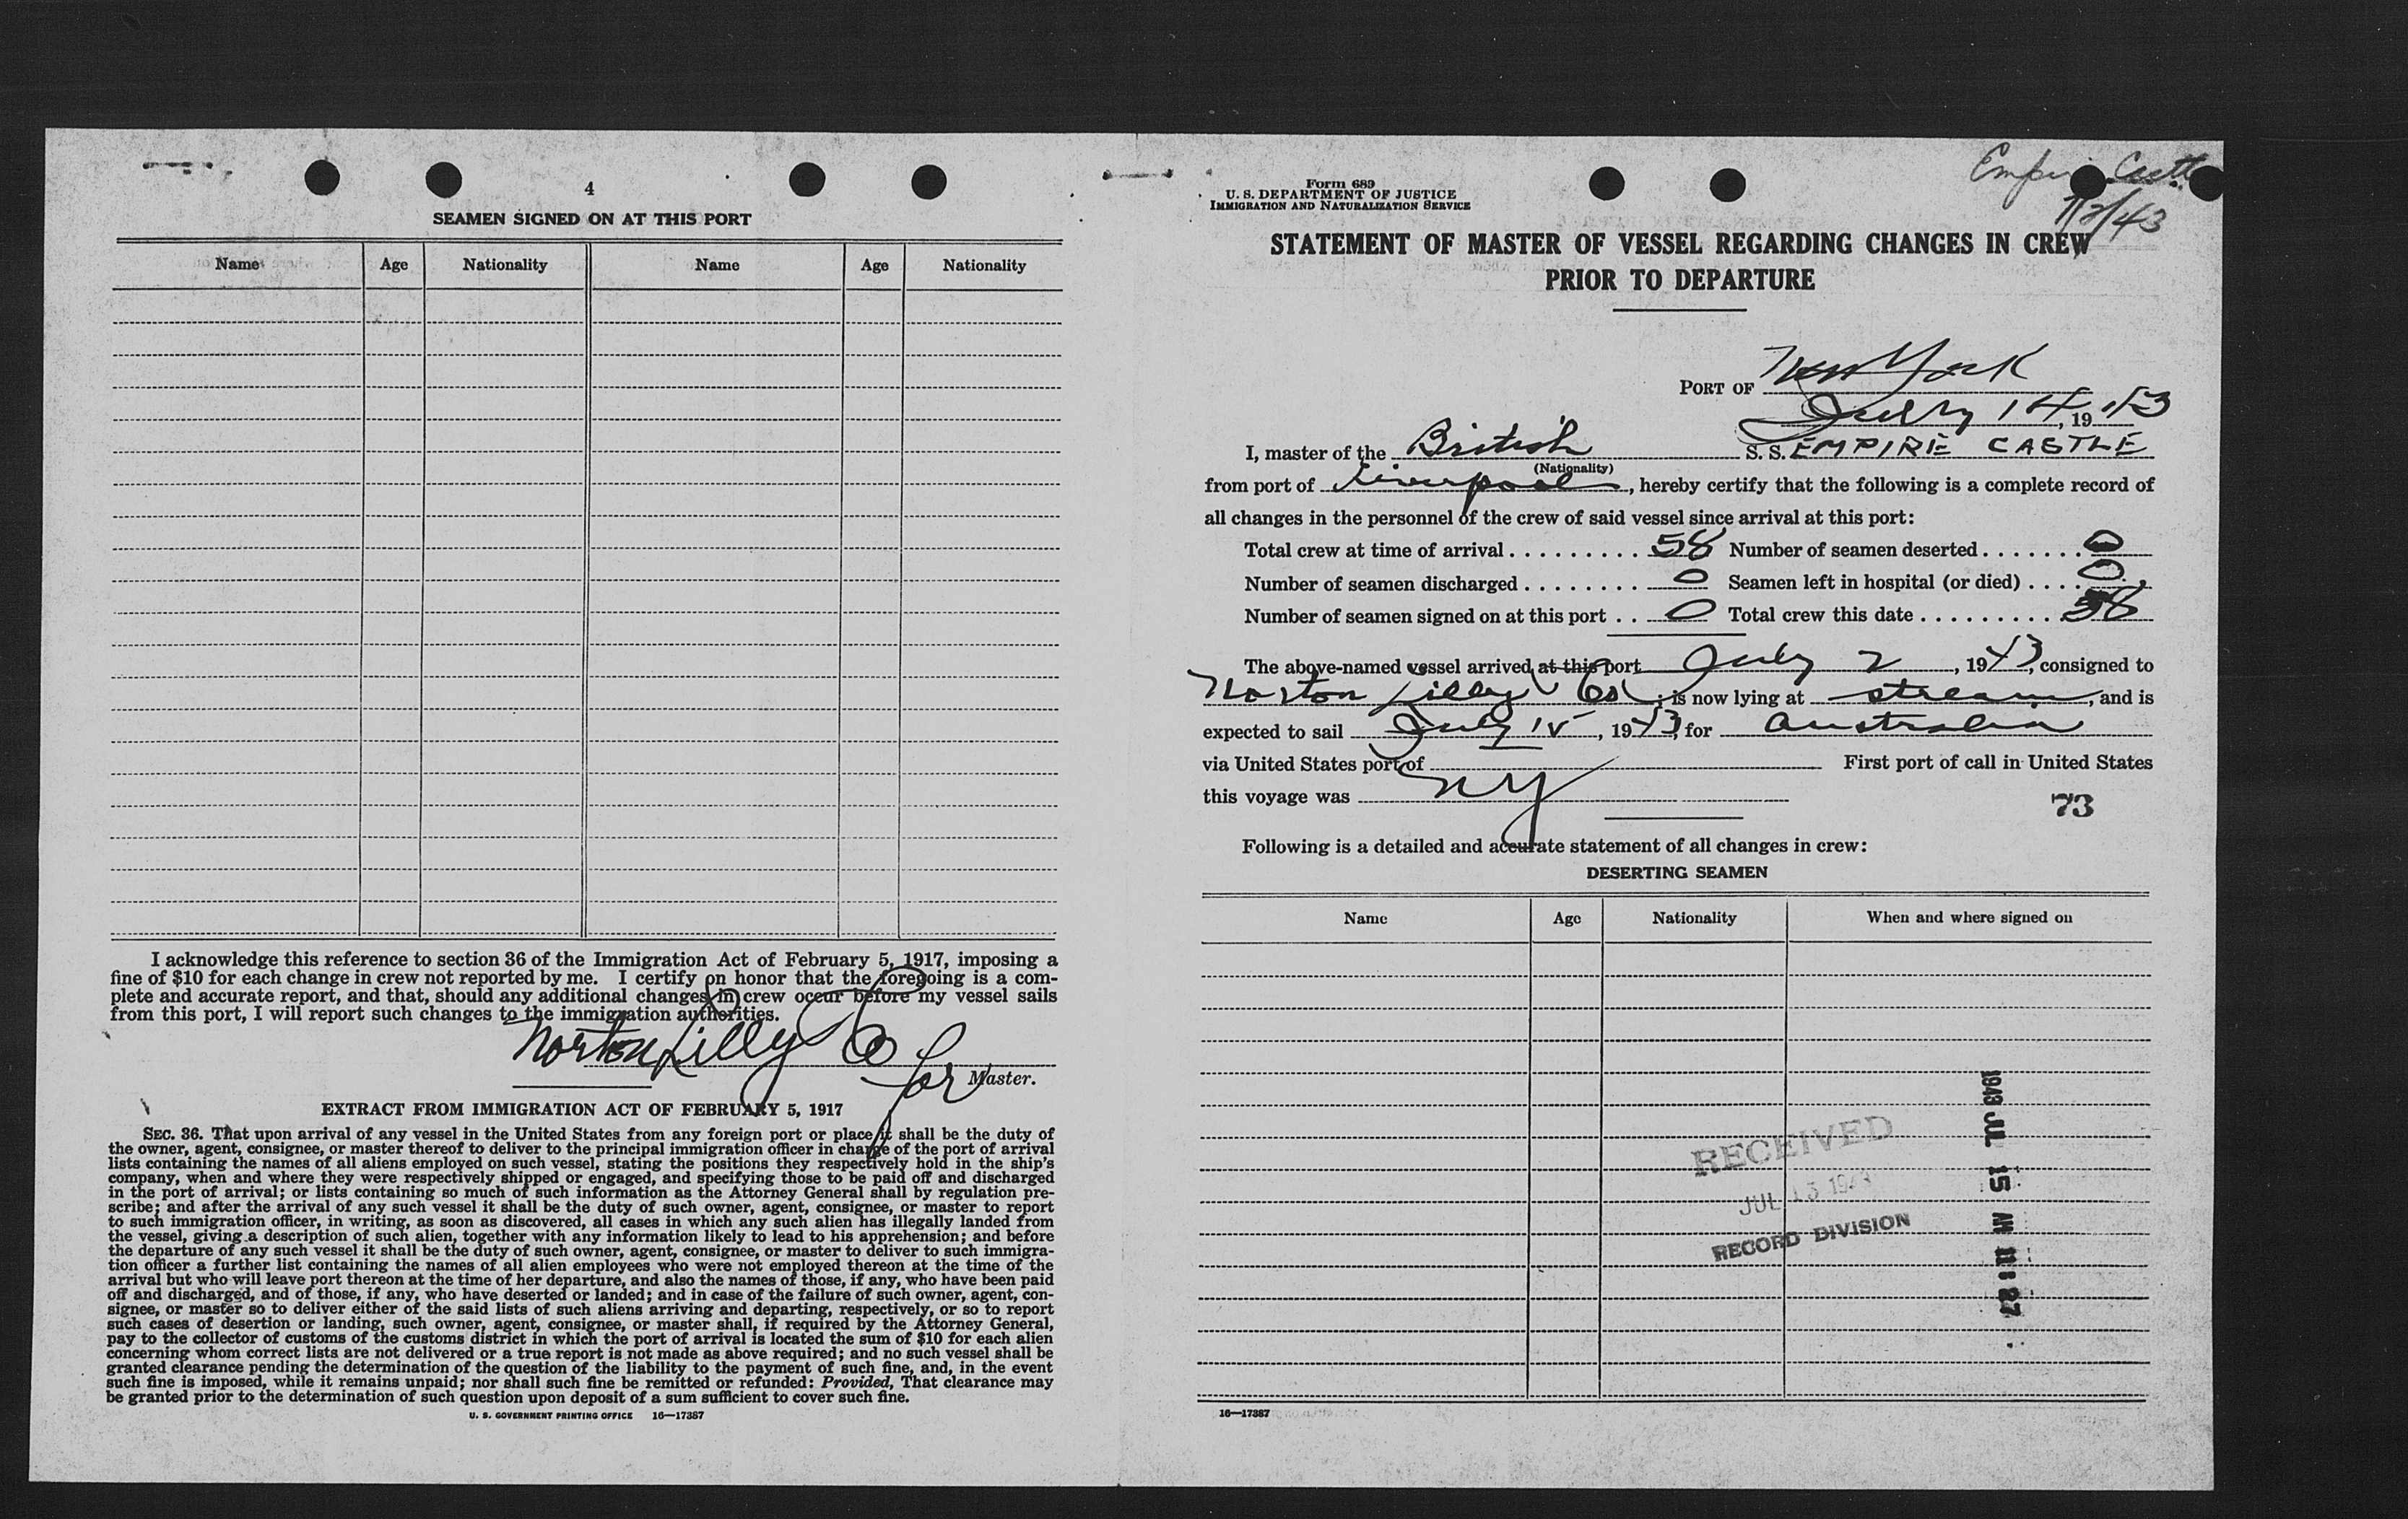 4
SEAMEN SIGNED ON AT THIS PORT
Name Age Nationality Name Age Nationality
I acknowledge this reference to section 36 of the Immigration Act of February 5, 1917, imposing a
fine of $10 for each change in crew not reported by me. I certify on honor that the foregoing is a com-
plete and accurate report, and that, should any additional changes in crew occur before my vessel sails
from this port, I will report such changes to the immigration authorities.
Norton Lilly Co
for Master.
EXTRACT FROM IMMIGRATION ACT OF FEBRUARY 5, 1917
SEC. 36. That upon arrival of any vessel in the United States from any foreign port or place it shall be the duty of
the owner, agent, consignee, or master thereof to deliver to the principal immigration officer in charge of the port of arrival
lists containing the names of all aliens employed on such vessel, stating the positions they respectively hold in the ship's
company, when and where they were respectively shipped or engaged, and specifying those to be paid off and discharged
in the port of arrival; or lists containing so much of such information as the Attorney General shall by regulation pre-
scribe; and after the arrival of any such vessel it shall be the duty of such owner, agent, consignee, or master to report
to such immigration officer, in writing, as soon as discovered, all cases in which any such alien has illegally landed from
the vessel, giving a description of such alien, together with any information likely to lead to his apprehension; and before
the departure of any such vessel it shall be the duty of such owner, agent, consignee, or master to deliver to such immigra-
tion officer a further list containing the names of all alien employees who were not employed thereon at the time of the
arrival but who will leave port thereon at the time of her departure, and also the names of those, if any, who have been paid
off and discharged, and of those, if any, who have deserted or landed; and in case of the failure of such owner, agent, con-
signee, or master so to deliver either of the said lists of such aliens arriving and departing, respectively, or so to report
such cases of desertion or landing, such owner, agent, consignee, or master shall, if required by the Attorney General,
pay to the collector of customs of the customs district in which the port of arrival is located the sum of $10 for each alien
concerning whom correct lists are not delivered or a true report is not made as above required; and no such vessel shall be
granted clearance pending the determination of the question of the liability to the payment of such fine, and, in the event
such fine is imposed, while it remains unpaid; nor shall such fine be remitted or refunded: Provided, That clearance may
be granted prior to the determination of such question upon deposit of a sum sufficient to cover such fine.
U. S. GOVERNMENT PRINTING OFFICE 16—17387
Form 689
U. S. DEPARTMENT OF JUSTICE
IMMIGRATION AND NATURALIZATION SERVICE
Empire Castle
7/2/43
STATEMENT OF MASTER OF VESSEL REGARDING CHANGES IN CREW
PRIOR TO DEPARTURE
PORT OF New York
July 14, 1943
I, master of the British S. S. EMPIRE CASTLE
(Nationality)
from port of Liverpool, hereby certify that the following is a complete record of
all changes in the personnel of the crew of said vessel since arrival at this port:
Total crew at time of arrival . . . . . . . . . 58 Number of seamen deserted . . . . . . . 0
Number of seamen discharged . . . . . . . . 0 Seamen left in hospital (or died) . . . . 0
Number of seamen signed on at this port . . 0 Total crew this date . . . . . . . . . 58
The above-named vessel arrived at this port July 2, 1943, consigned to
Norton Lilly Co; is now lying at stream, and is
expected to sail July 15, 1943, for Australia
via United States port of First port of call in United States
this voyage was NY
73
Following is a detailed and accurate statement of all changes in crew:
DESERTING SEAMEN
Name Age Nationality When and where signed on
1943 JUL 15 AM 11:27
RECEIVED
JUL 1943
RECORD DIVISION
16—17387